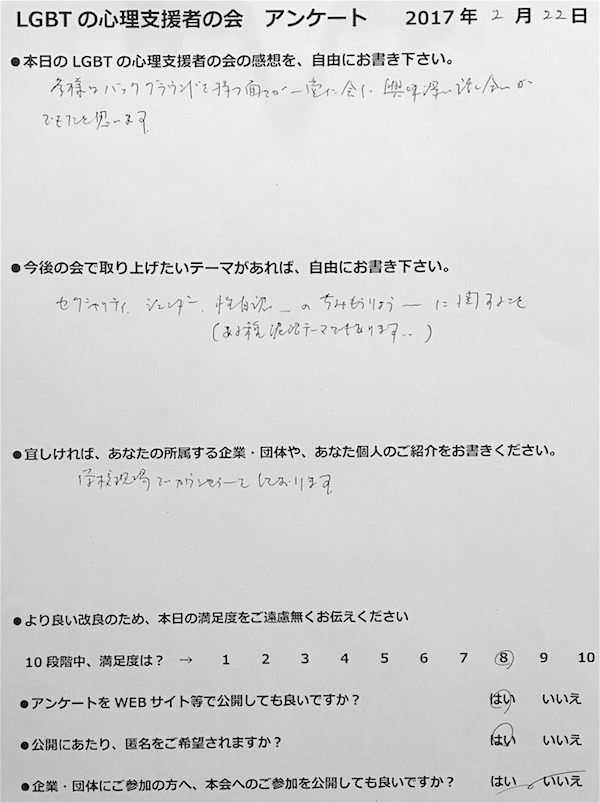 LGBTの心理支援者の会 アンケート 2017年2月22日
●本日のLGBTの心理支援者の会の感想を、自由にお書き下さい。
多様なバックグラウンドを持つ面々が一堂に会し、興味深い話し合いが
と思います
●今後の会で取り上げたいテーマがあれば、自由にお書き下さい。
セクシャリティ、ジェンダー、性自認…の ーに関すること
(ある種 テーマでもあります…)
●宜しければ、あなたの所属する企業・団体や、あなた個人のご紹介をお書きください。
学校現場でカウンセラーをしております
●より良い改良のため、本日の満足度をご遠慮無くお伝えください
10段階中、満足度は? → 1 2 3 4 5 6 7 8 9 10
●アンケートをWEBサイト等で公開しても良いですか? はい いいえ
●公開にあたり、匿名をご希望されますか? はい いいえ
●企業・団体にご参加の方へ、本会へのご参加を公開しても良いですか? はい いいえ